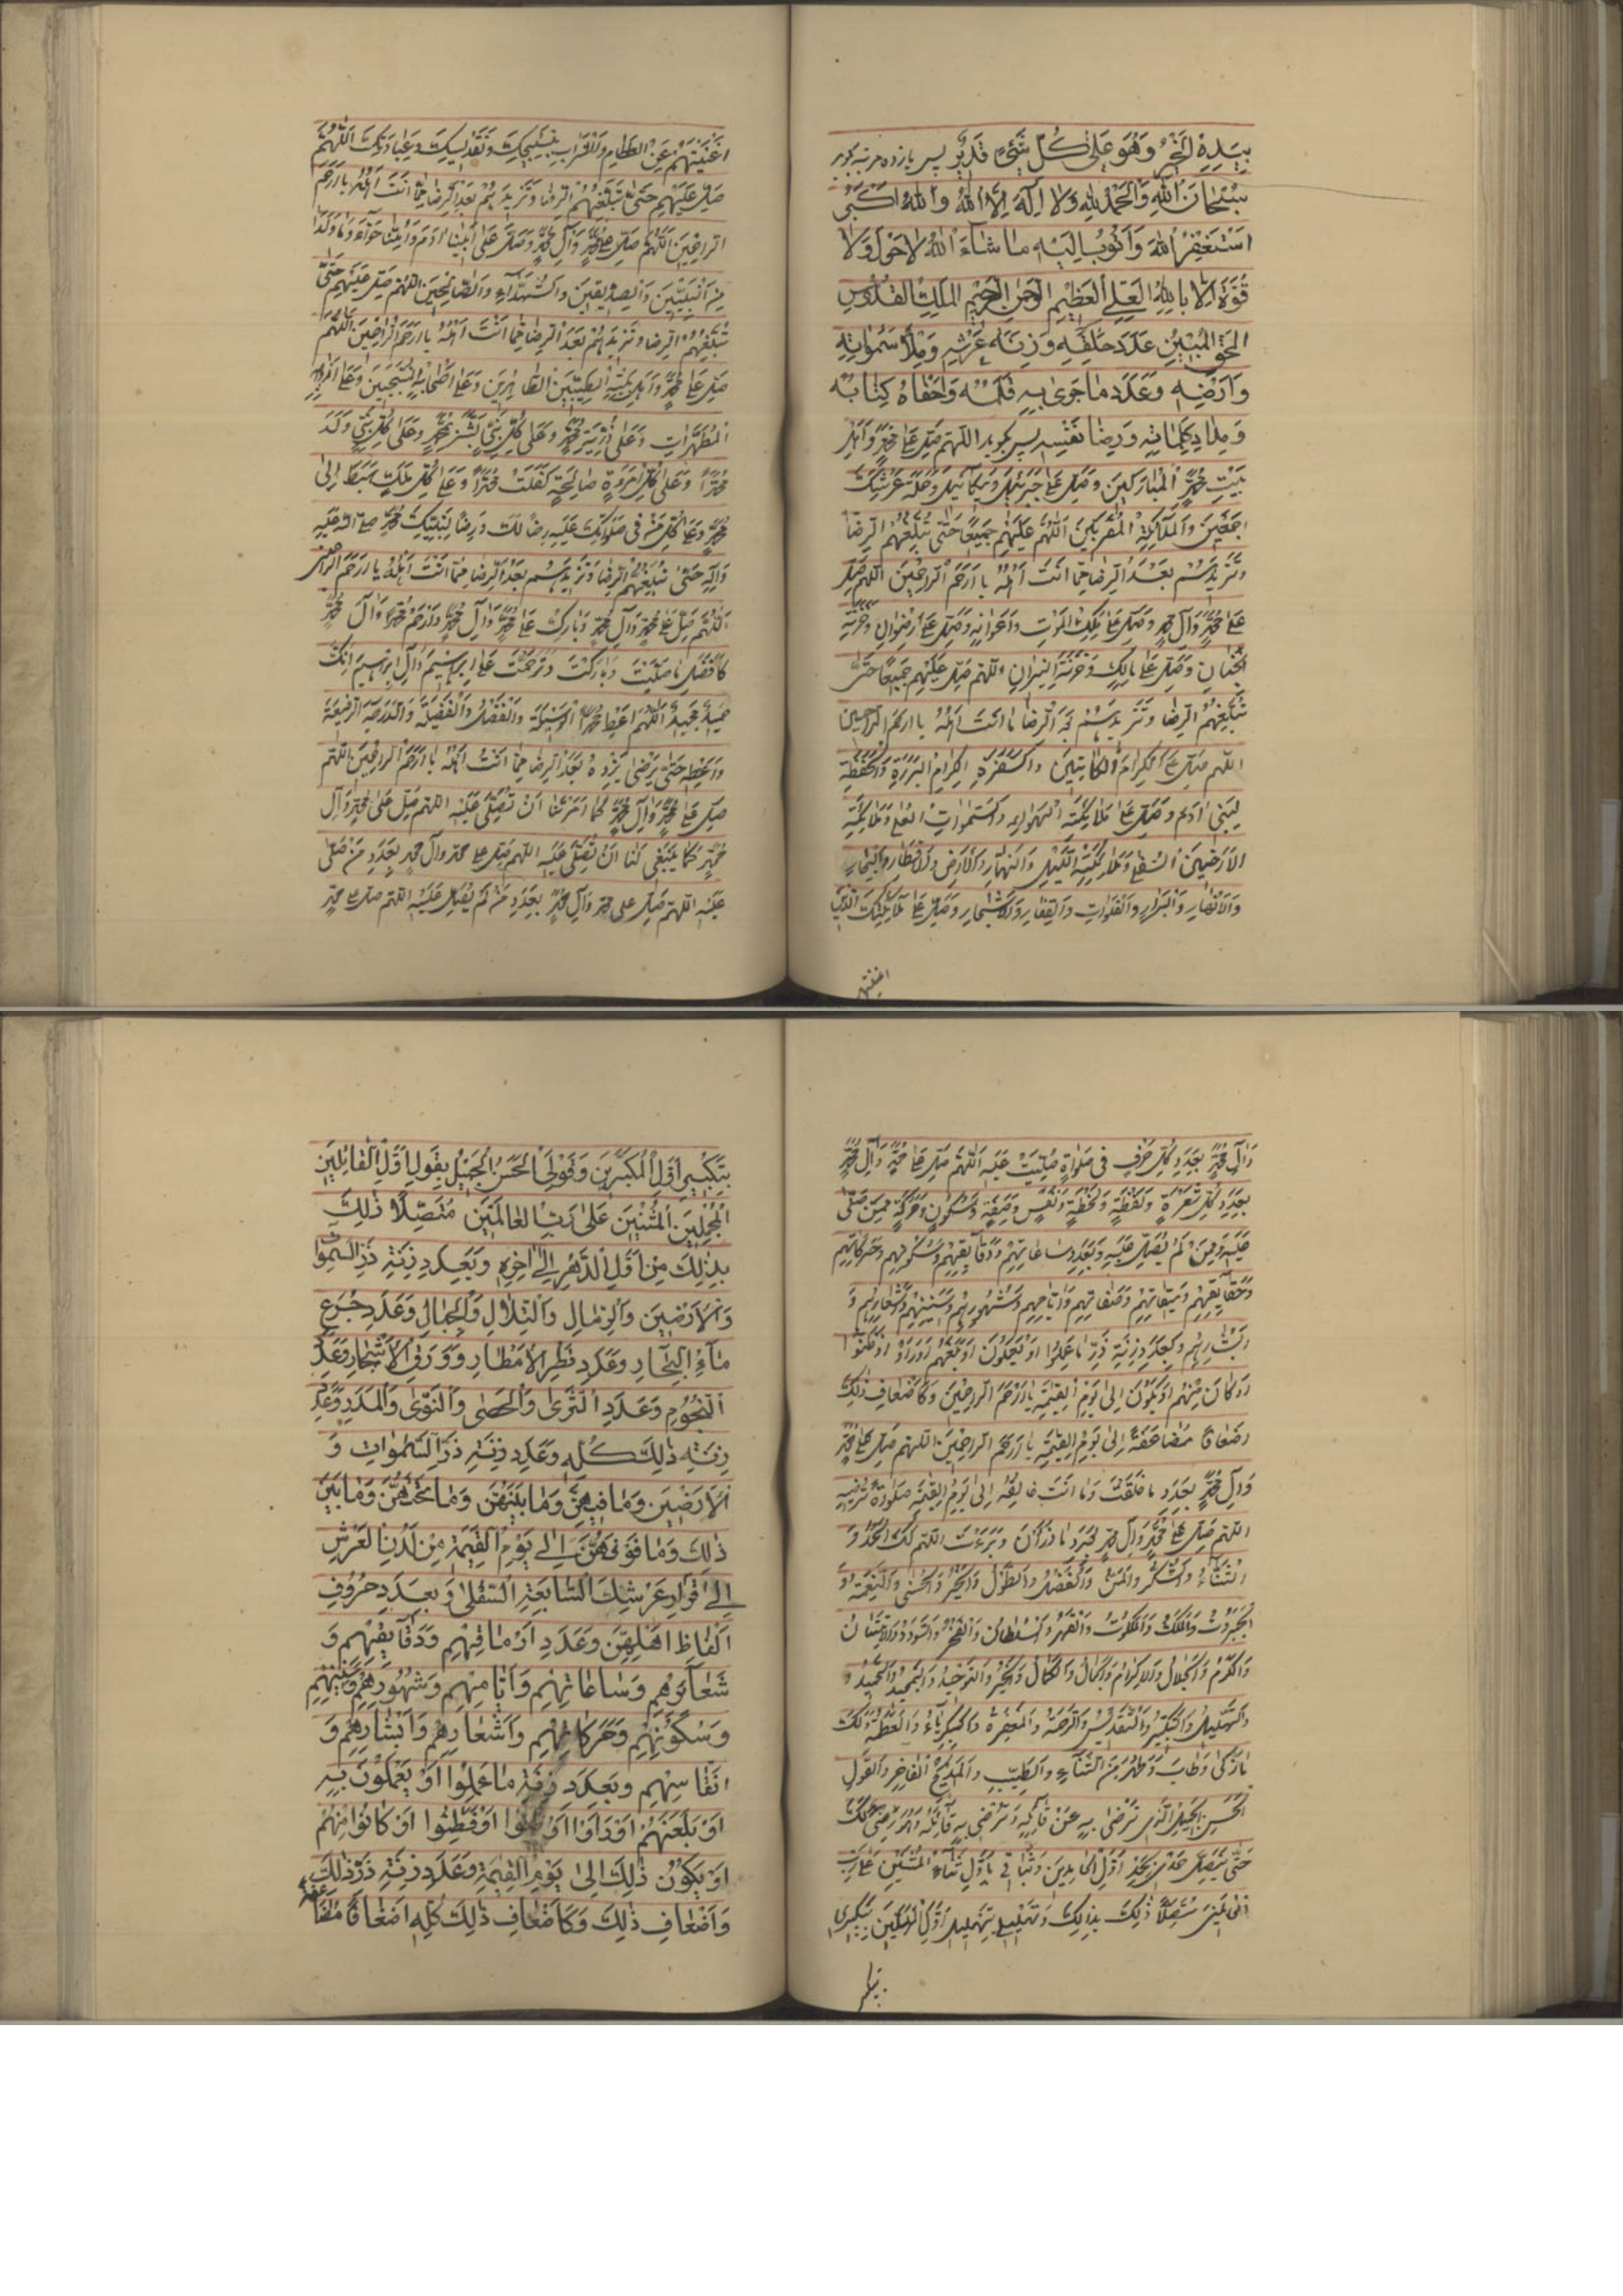 بِيَدِهِ الْخَيْرُ وَهُوَ عَلىٰ كُلِّ شَيْءٍ قَدِيْرٌ پس پازده مرتبه بگوید
سُبْحَانَ اللهِ وَالْحَمْدُ لِلّهِ وَلا اِلٰهَ اِلَّا اللهُ وَاللهُ اَكْبَرُ
اَسْتَغْفِرُ اللهَ وَاَتُوبُ اِلَيْهِ مَا شَاءَ اللهُ لا حَوْلَ وَلا
قُوَّةَ اِلّا بِاللهِ الْعَلِيِّ الْعَظِيْمِ الرَّحْمنِ الرَّحِيْمِ الْمَلِكِ الْقُدُّوسِ
الْحَقِّ الْمُبِيْنِ عَدَدَ خَلْقِهِ وَزِنَةَ عَرْشِهِ وَمِلْأَ سَمٰوَاتِهِ
وَاَرْضِهِ وَعَدَدَ مَا جَرىٰ بِهِ قَلَمُهُ وَاَحْصَاهُ كِتَابُهُ
وَمِدَادَ كَلِمَاتِهِ وَرِضَا نَفْسِهِ پس بگوید اللهم صَلِّ عَلىٰ مُحَمَّدٍ وَاَهْلِ
بَيْتِ مُحَمَّدٍ الْمُبَارَكِيْنَ وَصَلِّ عَلىٰ جَبْرَئِيلَ وَمِيْكَائِيلَ وَحَمَلَةِ عَرْشِكَ
اَجْمَعِيْنَ وَالْمَلٰئِكَةِ الْمُقَرَّبِيْنَ اَللّٰهُمَّ عَلَيْهِمْ جَمِيْعًا حَتّٰى تُبَلِّغَهُمُ الرِّضَا
وَتَزِيْدَهُمْ بَعْدَ الرِّضَا مِمَّا اَنْتَ اَهْلُهُ يَا اَرْحَمَ الرَّاحِمِيْنَ اَللّٰهُمَّ صَلِّ
عَلىٰ مُحَمَّدٍ وَآلِ مُحَمَّدٍ وَصَلِّ عَلىٰ مَلَكِ الْمَوْتِ وَاَعْوَانِهِ وَصَلِّ عَلىٰ رِضْوَانَ وَخَزَنَةِ
الْجِنَانِ وَصَلِّ عَلىٰ مَالِكٍ وَخَزَنَةِ النِّيْرَانِ اللهم صَلِّ عَلَيْهِمْ جَمِيْعًا حَتّٰى
تُبَلِّغَهُمُ الرِّضَا وَتَزِيْدَهُمْ بَعْدَ الرِّضَا مَا اَنْتَ اَهْلُهُ يَا اَرْحَمَ الرَّاحِمِيْنَ
اللهم صَلِّ عَلَى الْكِرَامِ الْكَاتِبِيْنَ وَالسَّفَرَةِ الْكِرَامِ الْبَرَرَةِ وَالْحَفَظَةِ
لِبَنِيْ اٰدَمَ وَصَلِّ عَلىٰ مَلَائِكَةِ الْهَوَاءِ وَالسَّمٰوَاتِ الْعُلىٰ وَمَلَائِكَةِ
الْاَرَضِيْنَ السُّفْلىٰ وَمَلَائِكَةِ اللَّيْلِ وَالنَّهَارِ وَالْاَرْضِ وَالْاَقْطَارِ وَالْبِحَارِ
وَالْاَنْهَارِ وَالْبَرَارِي وَالْفَلَوَاتِ وَالْقِفَارِ وَالْاَشْجَارِ وَصَلِّ عَلىٰ مَلَائِكَتِكَ الَّذِيْنَ
اغنيتهم
اَغْنَيْتَهُمْ عَنِ الطَّعَامِ وَالشَّرَابِ بِتَسْبِيْحِكَ وَتَقْدِيْسِكَ وَعِبَادَتِكَ اَللّٰهُمَّ
صَلِّ عَلَيْهِمْ حَتّٰى تُبَلِّغَهُمُ الرِّضَا وَتَزِيْدَهُمْ بَعْدَ الرِّضَا مِمَّا اَنْتَ اَهْلُهُ يَا اَرْحَمَ
الرَّاحِمِيْنَ اَللّٰهُمَّ صَلِّ عَلىٰ مُحَمَّدٍ وَآلِ مُحَمَّدٍ وَصَلِّ عَلىٰ اَبِيْنَا اٰدَمَ وَاُمِّنَا حَوَّاءَ وَمَا وَلَدَا
مِنَ النَّبِيِّيْنَ وَالصِّدِّيْقِيْنَ وَالشُّهَدَاءِ وَالصَّالِحِيْنَ اللهم صَلِّ عَلَيْهِمْ حَتّٰى
تُبَلِّغَهُمُ الرِّضَا وَتَزِيْدَهُمْ بَعْدَ الرِّضَا مِمَّا اَنْتَ اَهْلُهُ يَا اَرْحَمَ الرَّاحِمِيْنَ اَللّٰهُمَّ
صَلِّ عَلىٰ مُحَمَّدٍ وَاَهْلِ بَيْتِهِ الطَّيِّبِيْنَ الطَّاهِرِيْنَ وَعَلىٰ اَصْحَابِهِ الْمُنْتَجَبِيْنَ وَعَلىٰ اَزْوَاجِهِ
الْمُطَهَّرَاتِ وَعَلىٰ ذُرِّيَّةِ مُحَمَّدٍ وَعَلىٰ كُلِّ نَبِيٍّ بَشَّرَ بِمُحَمَّدٍ وَعَلىٰ كُلِّ نَبِيٍّ وَلَدَ
مُحَمَّدًا وَعَلىٰ كُلِّ امْرَءَةٍ صَالِحَةٍ كَفَلَتْ مُحَمَّدًا وَعَلىٰ كُلِّ مَلَكٍ هَبَطَ اِلىٰ
مُحَمَّدٍ وَعَلىٰ كُلِّ مَنْ فِي صَلَوَاتِكَ عَلَيْهِ رِضًا لَكَ وَرِضًا لِنَبِيِّكَ مُحَمَّدٍ صلى الله عليه
وَآلِهِ حَتّٰى تُبَلِّغَهُمُ الرِّضَا وَتَزِيْدَهُمْ بَعْدَ الرِّضَا مِمَّا اَنْتَ اَهْلُهُ يَا اَرْحَمَ الرَّاحِمِيْنَ
اَللّٰهُمَّ صَلِّ عَلىٰ مُحَمَّدٍ وَآلِ مُحَمَّدٍ وَبَارِكْ عَلىٰ مُحَمَّدٍ وَآلِ مُحَمَّدٍ وَارْحَمْ مُحَمَّدًا وَآلَ مُحَمَّدٍ
كَاَفْضَلِ مَا صَلَّيْتَ وَبَارَكْتَ وَتَرَحَّمْتَ عَلىٰ اِبْرَاهِيْمَ وَآلِ اِبْرَاهِيْمَ اِنَّكَ
حَمِيْدٌ مَجِيْدٌ اَللّٰهُمَّ اَعْطِ مُحَمَّدًا الْوَسِيْلَةَ وَالْفَضْلَ وَالْفَضِيْلَةَ وَالدَّرَجَةَ الرَّفِيْعَةَ
وَاَعْطِهِ حَتّٰى يَرْضىٰ وَزِدْهُ بَعْدَ الرِّضَا مِمَّا اَنْتَ اَهْلُهُ يَا اَرْحَمَ الرَّاحِمِيْنَ اللهم
صَلِّ عَلىٰ مُحَمَّدٍ وَآلِ مُحَمَّدٍ كَمَا اَمَرْتَنَا اَنْ نُصَلِّيَ عَلَيْهِ اللهم صَلِّ عَلىٰ مُحَمَّدٍ وَآلِ
مُحَمَّدٍ كَمَا يَنْبَغِيْ لَنَا اَنْ نُصَلِّيَ عَلَيْهِ اللهم صَلِّ على محمد وآل محمد بِعَدَدِ مَنْ صَلّىٰ
عَلَيْهِ اللهم صَلِّ على محمد وَآلِ مُحَمَّدٍ بِعَدَدِ مَنْ لَمْ يُصَلِّ عَلَيْهِ اللهم صل على محمد
وَآلِ مُحَمَّدٍ بِعَدَدِ كُلِّ حَرْفٍ فِي صَلَوٰةٍ صُلِّيَتْ عَلَيْهِ اَللّٰهُمَّ صَلِّ عَلىٰ مُحَمَّدٍ وَآلِ مُحَمَّدٍ
بِعَدَدِ كُلِّ شَعْرَةٍ وَلَفْظَةٍ وَلَحْظَةٍ وَنَفَسٍ وَصِفَةٍ وَسُكُونٍ وَحَرَكَةٍ مِمَّنْ صَلّىٰ
عَلَيْهِ وَمِمَّنْ لَمْ يُصَلِّ عَلَيْهِ وَبِعَدَدِ سَاعَاتِهِمْ وَدَقَائِقِهِمْ وَسُكُونِهِمْ وَحَرَكَاتِهِمْ
وَحَقَايِقِهِمْ وَمِيْقَاتِهِمْ وَصِفَاتِهِمْ وَاَيَّامِهِمْ وَشُهُورِهِمْ وَسَنَتِهِمْ وَاَشْعَارِهِمْ وَ
اَبْشَارِهِمْ وَبِعَدَدِ زِنَةِ ذَرِّ مَا عَمِلُوا اَوْ يَعْمَلُونَ اَوْ بَلَغَهُمْ اَوْ رَاَوْا اَوْ ظَنُّوا
اَوْ كَانَ مِنْهُمْ اَوْ يَكُوْنُ اِلىٰ يَوْمِ الْقِيٰمَةِ يَا اَرْحَمَ الرَّاحِمِيْنَ وَكَاَضْعَافِ ذٰلِكَ
اَضْعَافًا مُضَاعَفَةً اِلىٰ يَوْمِ الْقِيٰمَةِ يَا اَرْحَمَ الرَّاحِمِيْنَ اللهم صَلِّ عَلىٰ مُحَمَّدٍ
وَآلِ مُحَمَّدٍ بِعَدَدِ مَا خَلَقْتَ وَمَا اَنْتَ خَالِقُهُ اِلىٰ يَوْمِ الْقِيٰمَةِ صَلَوٰةً تُرْضِيْهِ
اللهم صَلِّ عَلىٰ مُحَمَّدٍ وَآلِ مُحَمَّدٍ بِعَدَدِ مَا ذَرَأْتَ وَبَرَءْتَ اللهم لَكَ الْحَمْدُ وَ
الثَّنَاءُ وَالشُّكْرُ وَالْمَنُّ وَالْفَضْلُ وَالطَّوْلُ وَالْخَيْرُ وَالْحُسْنىٰ وَالنِّعْمَةُ وَ
الْجَبَرُوْتُ وَالْمُلْكُ وَالْمَلَكُوْتُ وَالْقَهْرُ وَالسُّلْطَانُ وَالْفَخْرُ وَالسُّؤْدَدُ وَالْاِمْتِنَانُ
وَالْكَرَمُ وَالْجَلَالُ وَالْاِكْرَامُ وَالْجَمَالُ وَالْكَمَالُ وَالْخَيْرُ وَالتَّوْحِيْدُ وَالتَّمْجِيْدُ وَالتَّحْمِيْدُ وَ
وَالتَّهْلِيْلُ وَالتَّكْبِيْرُ وَالتَّقْدِيْسُ وَالرَّحْمَةُ وَالْمَغْفِرَةُ وَالْكِبْرِيَاءُ وَالْعَظَمَةُ وَلَكَ
مَا زَكىٰ وَطَابَ وَطَهُرَ مِنَ الثَّنَاءِ وَالطَّيِّبِ وَالْمَدِيْحِ الْفَاخِرِ وَالْقَوْلِ
الْحَسَنِ الْجَمِيْلِ الَّذِيْ تَرْضىٰ بِهِ عَنْ قَائِلِهِ وَتُرْضِيْ بِهِ قَائِلَهُ وَهُوَ رِضًى لَكَ
حَتّٰى يَتَّصِلَ حَمْدِيْ بِحَمْدِ اَوَّلِ الْحَامِدِيْنَ وَثَنَائِيْ بِاَوَّلِ ثَنَاءِ الْمُثْنِيْنَ عَلىٰ رَبِّ
الْعَالَمِيْنَ مُتَّصِلًا ذٰلِكَ بِذٰلِكَ وَتَهْلِيْلِيْ بِتَهْلِيْلِ اَوَّلِ الْمُهَلِّلِيْنَ وَتَكْبِيْرِيْ
بتكبير
بِتَكْبِيْرِ اَوَّلِ الْمُكَبِّرِيْنَ وَقَوْلِيَ الْحَسَنُ الْجَمِيْلُ بِقَوْلِ اَوَّلِ الْقَائِلِيْنَ
الْمُجْمِلِيْنَ الْمُثْنِيْنَ عَلىٰ رَبِّ الْعَالَمِيْنَ مُتَّصِلًا ذٰلِكَ
بِذٰلِكَ مِنْ اَوَّلِ الدَّهْرِ اِلىٰ اٰخِرِهِ وَبِعَدَدِ زِنَةِ ذَرِّ السَّمٰوَاتِ
وَالْاَرَضِيْنَ وَالرِّمَالِ وَالتِّلَالِ وَالْجِبَالِ وَعَدَدِ جُرَعِ
مَآءِ الْبِحَارِ وَعَدَدِ قَطْرِ الْاَمْطَارِ وَوَرَقِ الْاَشْجَارِ وَعَدَدِ
النُّجُوْمِ وَعَدَدِ الثَّرىٰ وَالْحَصىٰ وَالنَّوىٰ وَالْمَدَرِ وَعَدَدِ
زِنَةِ ذٰلِكَ كُلِّهِ وَعَدَدِ زِنَةِ ذَرِّ السَّمٰوَاتِ وَ
الْاَرَضِيْنَ وَمَا فِيْهِنَّ وَمَا بَيْنَهُنَّ وَمَا تَحْتَهُنَّ وَمَا بَيْنَ
ذٰلِكَ وَمَا فَوْقَهُنَّ اِلىٰ يَوْمِ الْقِيٰمَةِ مِنْ لَدُنِ الْعَرْشِ
اِلىٰ قَرَارِ عَرْشِكَ السَّابِعَةِ السُّفْلىٰ وَبِعَدَدِ حُرُوْفِ
اَلْفَاظِ اَهْلِهِنَّ وَعَدَدِ اَزْمَانِهِمْ وَدَقَائِقِهِمْ وَ
شَعَائِرِهِمْ وَسَاعَاتِهِمْ وَاَيَّامِهِمْ وَشُهُوْرِهِمْ وَسِنِيْهِمْ
وَسُكُوْنِهِمْ وَحَرَكَاتِهِمْ وَاَشْعَارِهِمْ وَاَبْشَارِهِمْ وَ
اَنْفَاسِهِمْ وَبِعَدَدِ زِنَةِ مَا عَمِلُوْا اَوْ يَعْمَلُوْنَ بِهِ
اَوْ بَلَغَهُمْ اَوْ رَاَوْا اَوْ ظَنُّوْا اَوْ فَطِنُوْا اَوْ كَانُوْا مِنْهُمْ
اَوْ يَكُوْنُ ذٰلِكَ اِلىٰ يَوْمِ الْقِيٰمَةِ وَعَدَدِ زِنَةِ ذَرِّ ذٰلِكَ
وَاَضْعَافِ ذٰلِكَ وَكَاَضْعَافِ ذٰلِكَ كُلِّهِ اَضْعَافًا مُضَاعَفَةً